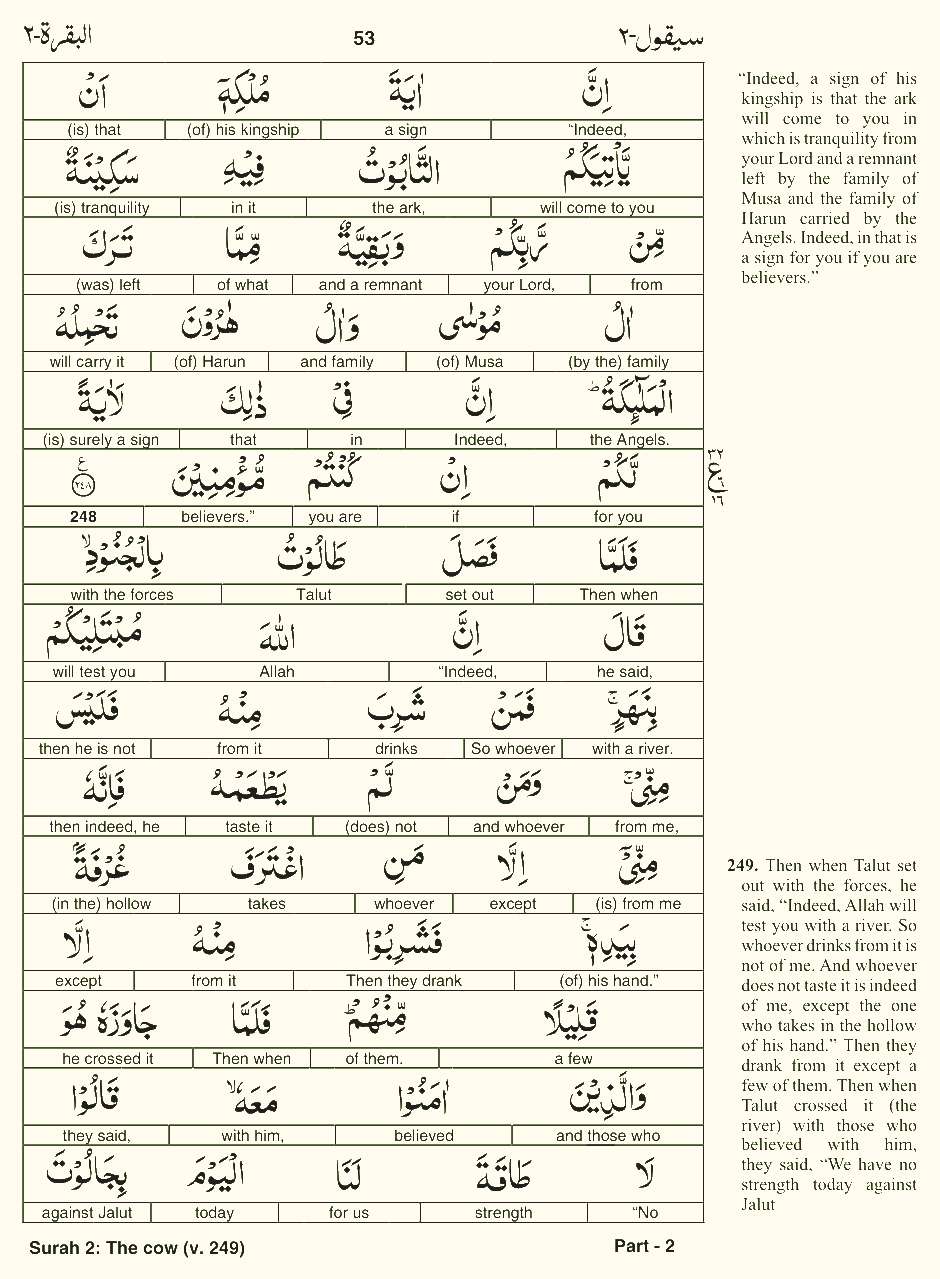 البقرة-٢ 53 سيقول-٢
اِنَّ اٰيَةَ مُلْكِهٖۤ اَنْ
(is) that (of) his kingship a sign “Indeed,
يَّاْتِيَكُمُ التَّابُوْتُ فِيْهِ سَكِيْنَةٌ
(is) tranquility in it the ark, will come to you
مِّنْ رَّبِّكُمْ وَبَقِيَّةٌ مِّمَّا تَرَكَ
(was) left of what and a remnant your Lord, from
اٰلُ مُوْسٰى وَاٰلُ هٰرُوْنَ تَحْمِلُهُ
will carry it (of) Harun and family (of) Musa (by the) family
الْمَلٰٓئِكَةُ ؕ اِنَّ فِيْ ذٰلِكَ لَاٰيَةً
(is) surely a sign that in Indeed, the Angels.
لَّكُمْ اِنْ كُنْتُمْ مُّؤْمِنِيْنَ ۟ع ٢٤٨
248 believers.” you are if for you
فَلَمَّا فَصَلَ طَالُوْتُ بِالْجُنُوْدِ ۙ
with the forces Talut set out Then when
قَالَ اِنَّ اللّٰهَ مُبْتَلِيْكُمْ
will test you Allah “Indeed, he said,
بِنَهَرٍ ۚ فَمَنْ شَرِبَ مِنْهُ فَلَيْسَ
then he is not from it drinks So whoever with a river.
مِنِّيْ ۚ وَمَنْ لَّمْ يَطْعَمْهُ فَاِنَّهٗ
then indeed, he taste it (does) not and whoever from me,
مِنِّيْۤ اِلَّا مَنِ اغْتَرَفَ غُرْفَةًۢ
(in the) hollow takes whoever except (is) from me
بِيَدِهٖ ۚ فَشَرِبُوْا مِنْهُ اِلَّا
except from it Then they drank (of) his hand.”
قَلِيْلًا مِّنْهُمْ ؕ فَلَمَّا جَاوَزَهٗ هُوَ
he crossed it Then when of them. a few
وَالَّذِيْنَ اٰمَنُوْا مَعَهٗ ۙ قَالُوْا
they said, with him, believed and those who
لَا طَاقَةَ لَنَا الْيَوْمَ بِجَالُوْتَ
against Jalut today for us strength “No
Surah 2: The cow (v. 249) Part - 2
“Indeed, a sign of his
kingship is that the ark
will come to you in
which is tranquility from
your Lord and a remnant
left by the family of
Musa and the family of
Harun carried by the
Angels. Indeed, in that is
a sign for you if you are
believers.”
249. Then when Talut set
out with the forces, he
said, “Indeed, Allah will
test you with a river. So
whoever drinks from it is
not of me. And whoever
does not taste it is indeed
of me, except the one
who takes in the hollow
of his hand.” Then they
drank from it except a
few of them. Then when
Talut crossed it (the
river) with those who
believed with him,
they said, “We have no
strength today against
Jalut